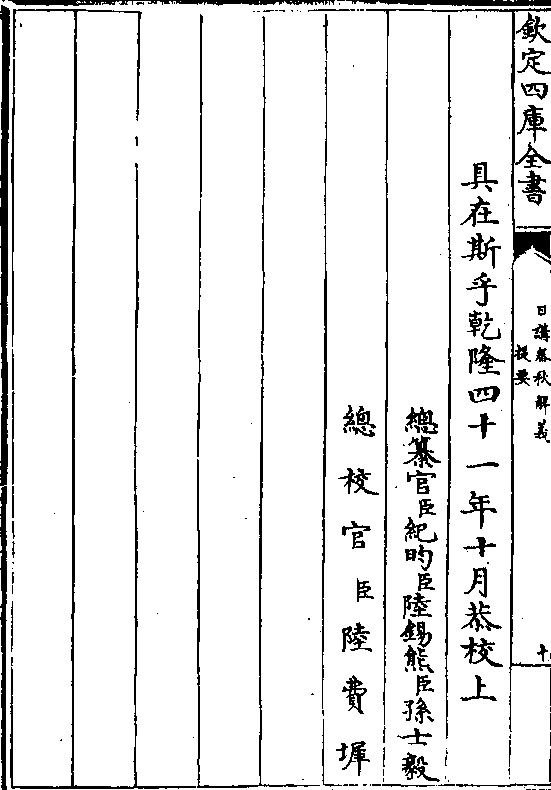 欽定四庫全書
日講春秋解義
提要
十
具在斯乎乾隆四十一年十月恭校上
總纂官臣紀昀臣陸錫熊臣孫士毅
總校官臣陸費墀